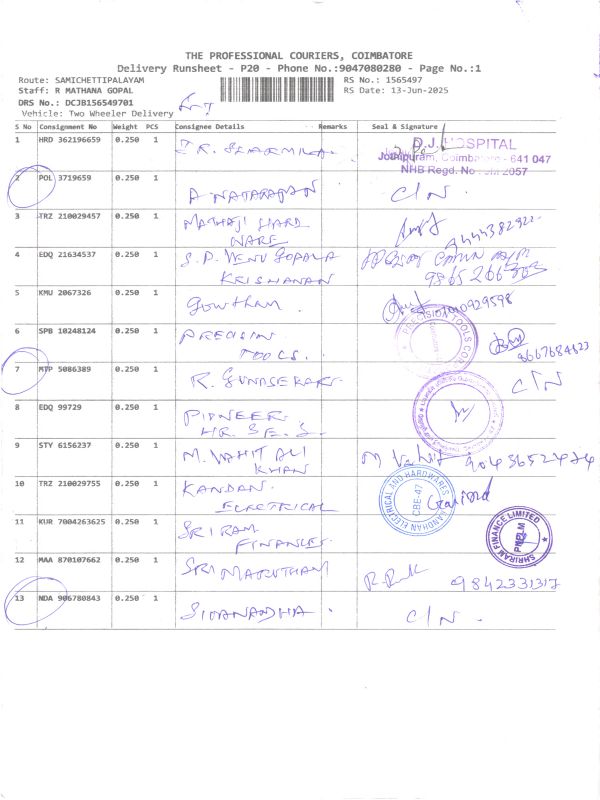 THE PROFESSIONAL COURIERS, COIMBATORE
Delivery Runsheet - P20 - Phone No.:9047080280 - Page No.:1
Route: SAMICHETTIPALAYAM RS No.: 1565497
Staff: R MATHANA GOPAL RS Date: 13-Jun-2025
DRS No.: DCJB156549701
Vehicle: Two Wheeler Delivery
S No Consignment No Weight PCS Consignee Details Remarks Seal & Signature
1 HRD 362196659 0.250 1 HOSPITAL
Coimbatore - 641 047
NHB Regd. No 2057
2 POL 3719659 0.250 1 A NATARAJAN C/N.
3 TRZ 210029457 0.250 1 MATHAJI HARD
WARE 9444382922
4 EDQ 21634537 0.250 1 S.P. VENU GOPALA
KRISHANAN
5 KMU 2067326 0.250 1 Gowtham.
6 SPB 10248124 0.250 1 PRECISION TOOLS. PRECISION TOOLS
8667684823
7 MTP 5086389 0.250 1 R. GUNASEKAR C/N
8 EDQ 99729 0.250 1 PIONEER
HR. SE. S.
9 STY 6156237 0.250 1 M. VAHIT ALI
KHAN
10 TRZ 210029755 0.250 1 KANDAN
ELECTRICAL KANDHAN ELECTRICAL AND HARDWARES CBE-47
11 KUR 7004263625 0.250 1 SRI RAM
FINANCE SHRIRAM FINANCE LIMITED
12 MAA 870107662 0.250 1 SRI MARUTHAM 9842331317
13 NDA 906780843 0.250 1 SIVANANDHA. C/N.